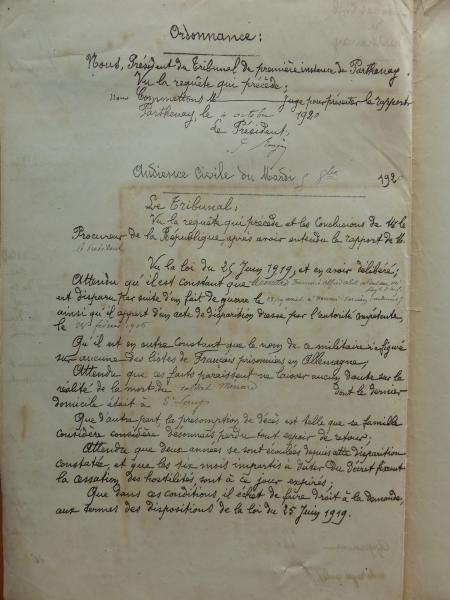 Ordonnance:
Nous, Président du Tribunal de première instance de Parthenay,
Vu la requête qui précède;
Nous Commettons M. juge pour présenter le rapport
Parthenay, le 4 octobre 1920
Le Président,
Audience Civile du Mardi 5 8bre 192
Le Tribunal:
Vu la requête qui précède et les conclusions de M. le
Procureur de la République, après avoir entendu le rapport de M.
le Président
Vu la loi du 25 Juin 1919, et en avoir délibéré;
Attendu qu'il est constant que
est disparu par suite d'un fait de guerre le
ainsi qu'il appert d'un acte de disparition dressé par l'autorité compétente,
le février
Qu'il est en outre constant que le nom de ce militaire n'a figuré
sur aucune des listes de Français prisonniers en Allemagne;
Attendu que ces faits paraissent ne laisser aucun doute sur la
réalité de la mort de Ménard dont le dernier
domicile était à St Loup
Que d'autre part, la présomption de décès est telle que sa famille
considère considère désormais perdu tout espoir de retour;
Attendu que deux années se sont écoulées depuis cette disparition
constatée, et que les six mois impartis à dater du décret fixant
la cessation des hostilités sont à ce jour expirés;
Que dans ces conditions, il échet de faire droit à la demande,
aux termes des dispositions de la loi du 25 Juin 1919.